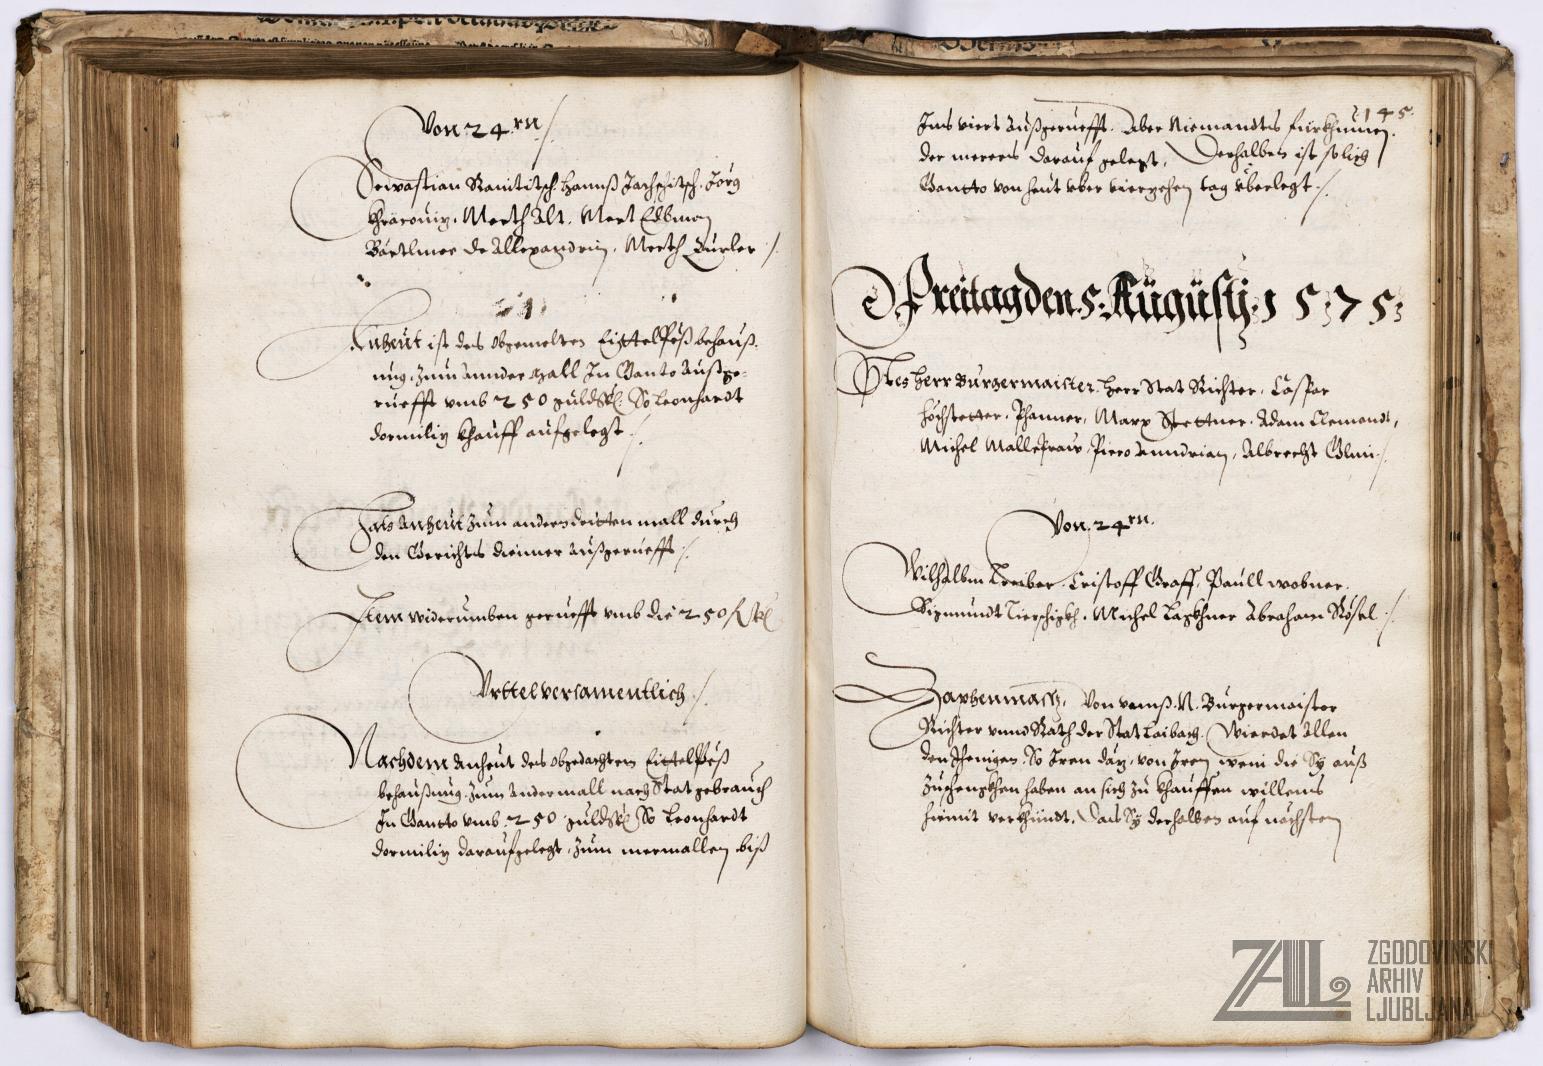 Von 24 rn ./.
Sewastian Ranititsch. Hannß Jachschitsch. Jörg
Khraeouiz. Merth Alt. Mert Edbman
Bärtlmee de Allexandrin. Merth Burler ./.
Anheut ist des obgemelten Eittelpöß behauß-
ung. Zum Annder mall In Ganto Außge-
ruefft vmb 250 guld So Leonhardt
dormiliz khauff aufgelegt ./.
Jals Anheut zum andern dritten mall durch
den Gerichts dienner Außgerueffts ./.
Item widerumben geruefft vmb die 250 R
Vrttel versamentlich ./.
Nachdem Anheut des obgedachten Eittelpöß
behaußung zum Andermall nach Stat gebrauch
In Gantto vmb 250 guld So Leonhardt
dormiliz daraufgelegt, zum mermallen biß
145.
Ins viert Außgruefft. Aber Niemandts fürkhumen.
der merers darauf gelegt, Derhalben ist solich
Gantto von heut vber vierzehen tag vberlegt ./.
Freitag den 5. Augusty. 1575.
Herr Burgermaister. Herr Stat Richter. Caspar
höchstetter. Phanner, Marx Stettner. Adam Clemendt,
Michel Mallefraw. Piero Anndrian, Albrecht Glimi ./.
Von. 24 rn.
Wilhalbm Treiber. Cristoff Graff, Paull wobner.
Sigmundt Tierschigkh. Michel Lagkhner Abraham Rösel ./.
Von vnnß. N. Burgermaister
Richter vnnd Rath der Stat Laibach. Wierdet Allen
den Jhenigen. So Iren day, von Iren wein die Sy auß
Zuschengkhen haben an sich zu khauffen willens
hiemit verkhündt. das Sy derhalben auf nächsten
ZGODOVINSKI
ARHIV
LJUBLJANA